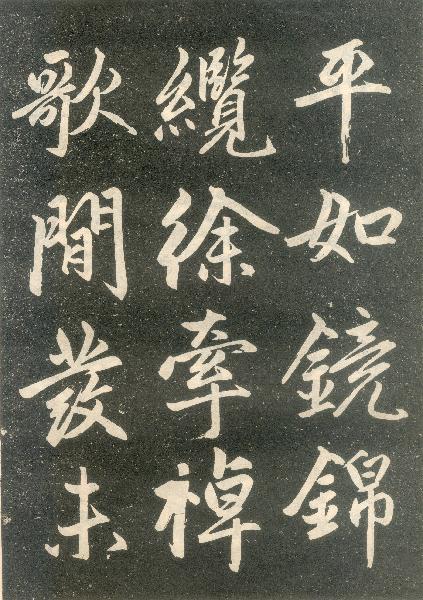 平如鏡錦
纜徐牽棹
歌閒發未